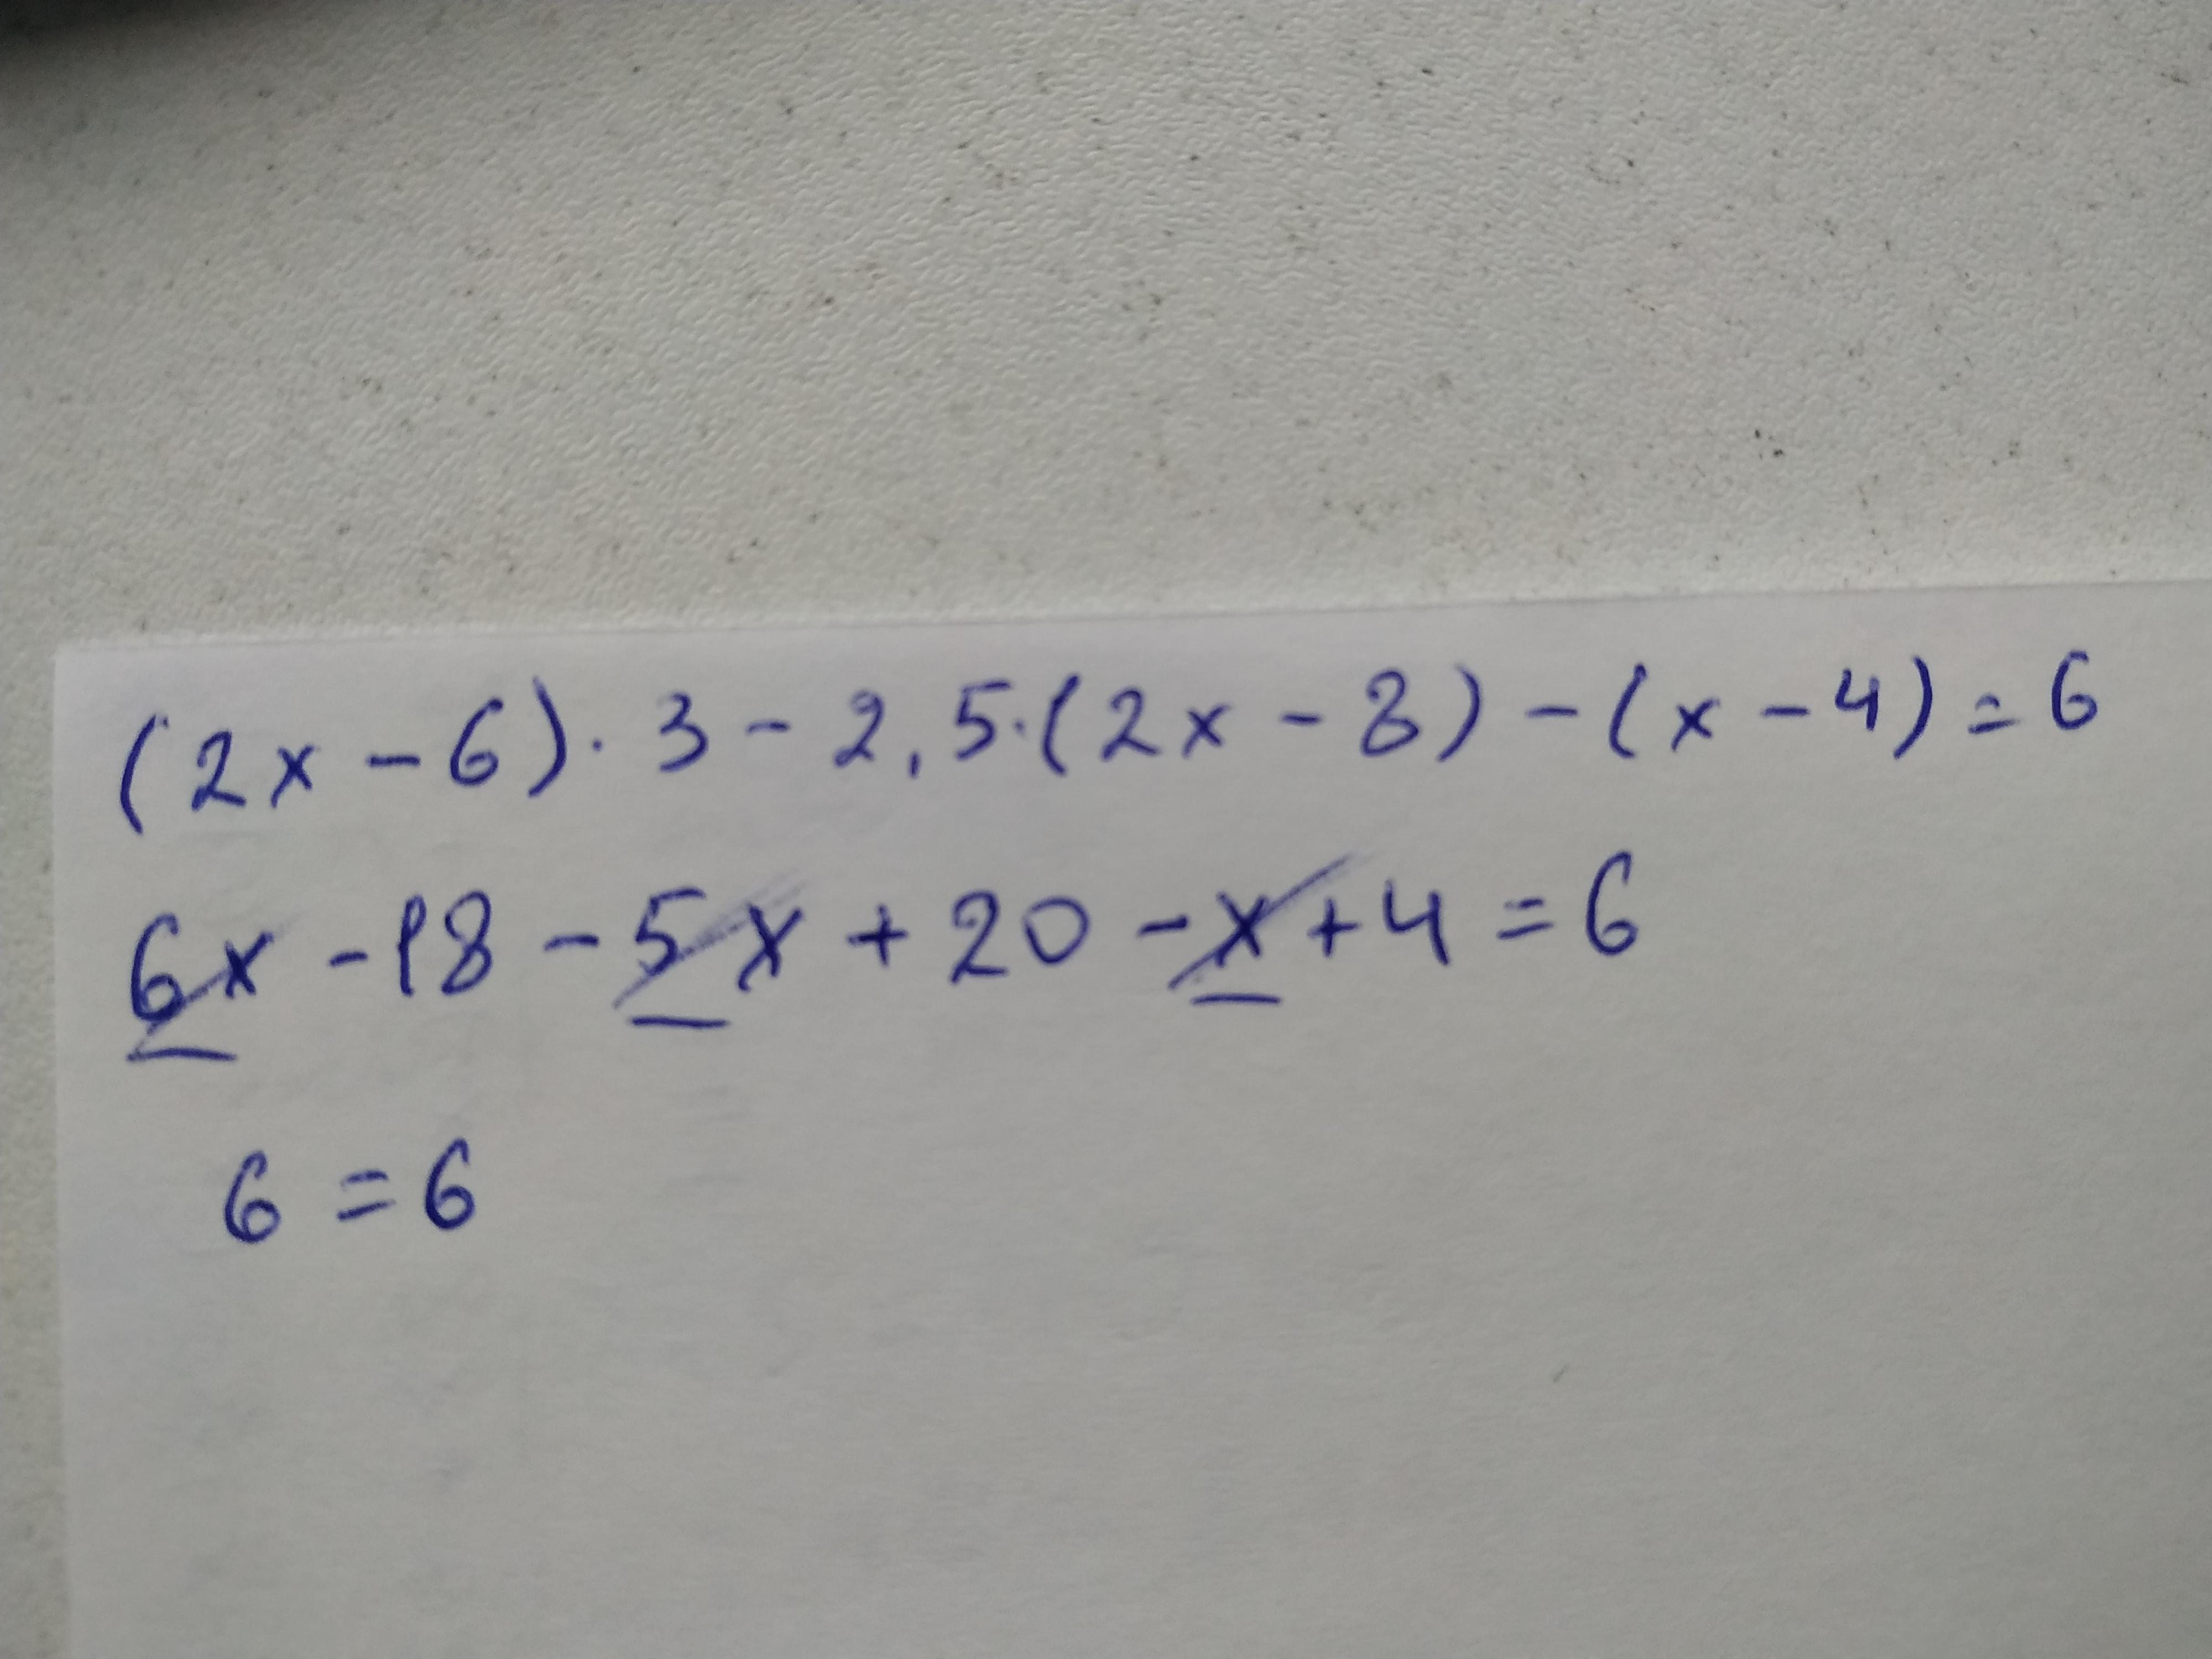 (2x - 6) · 3 - 2,5·(2x - 8) - (x - 4) = 6
6x - 18 - 5x + 20 - x + 4 = 6
6 = 6